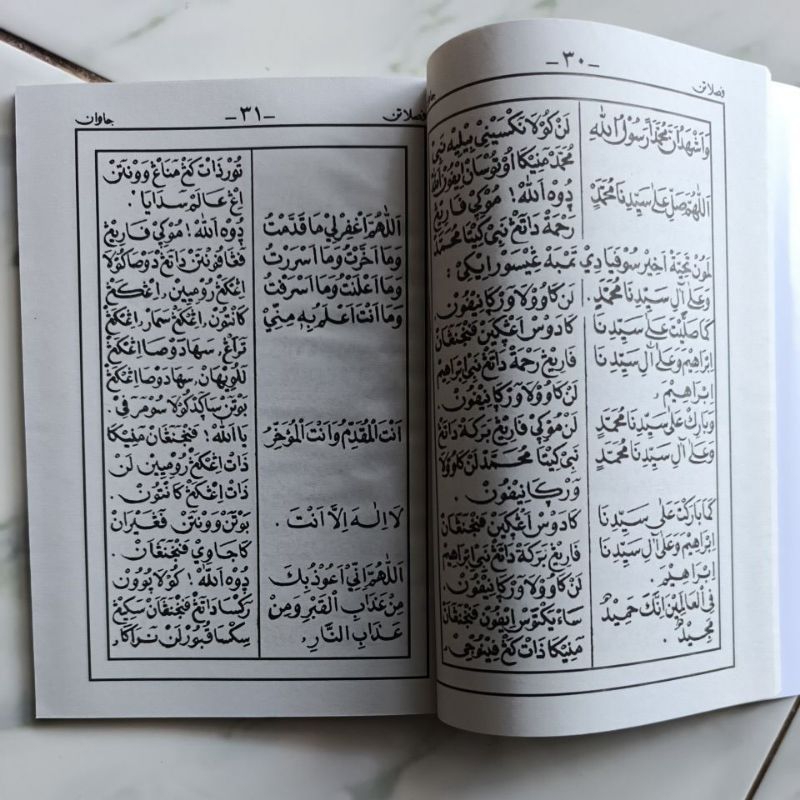 -٣٠-
فصلاتن
وَاَشْهَدُاَنَّ مُحَمَّدًا رَسُوْلُ اللهِ
اَللّٰهُمَّ صَلِّ عَلٰى سَيِّدِنَا مُحَمَّدٍ
وَعَلٰى آلِ سَيِّدِنَا مُحَمَّدٍ.
كَمَا صَلَّيْتَ عَلٰى سَيِّدِنَا
اِبْرَاهِيْمَ وَعَلٰى آلِ سَيِّدِنَا
اِبْرَاهِيْمَ.
وَبَارِكْ عَلٰى سَيِّدِنَا مُحَمَّدٍ
وَعَلٰى آلِ سَيِّدِنَا مُحَمَّدٍ
كَمَا بَارَكْتَ عَلٰى سَيِّدِنَا
اِبْرَاهِيْمَ وَعَلٰى آلِ سَيِّدِنَا
اِبْرَاهِيْمَ.
فِي الْعَالَمِيْنَ اِنَّكَ حَمِيْدٌ
مَجِيْدٌ.
لَنْ كَوُلَا نَكْسَيْنِيْ بِيْلِيْهِ نَبِيْ
مُحَمَّدْ مَنِيْكَا اُوْتُوْسَانْ اِيْفُوْنْ اَللّٰه
دُوْهْ اَللّٰه! مُوْكِيْ فَارِيْڠْ
رَحْمَةْ دَاتَڠْ نَبِيْ كِيْتَا مُحَمَّدْ
لَمُوْنْ تَحِيَّةْ اَخِيْرْ سُوْفَيَا دِيْ تَمْبَهْ غِيْسَوْرْ اِيْكِيْ :
لَنْ كَاوُوْلَاوَرْكَا نِيْفُوْنْ.
كَادَوْسْ اَغْكَيْنْ فَنْجَنَڠَانْ
فَارِيْڠْ رَحْمَةْ دَاتَڠْ نَبِيْ اِبْرَاهِيْمْ
لَنْ كَاوُوْلَا وَرْكَا نِيْفُوْنْ.
لَنْ مُوْكِيْ فَارِيْڠْ بَرَكَةْ دَاتَڠْ
نَبِيْ كِيْتَا مُحَمَّدْ لَنْ كَاوُوْلَا
وَرْكَا نِيْفُوْنْ.
كَادَوْسْ اَغْكَيْنْ فَنْجَنَڠَانْ
فَارِيْڠْ بَرَكَةْ دَاتَڠْ نَبِيْ اِبْرَاهِيْمْ
لَنْ كَاوُوْلَا وَرْكَا نِيْفُوْنْ.
مَنِيْكَا ذَاتْ كَڠْ فِيْنُوْجِيْ.
جاوان
-٣١-
فصلاتن
اَللّٰهُمَّ اغْفِرْ لِيْ مَا قَدَّمْتُ
وَمَا اَخَّرْتُ وَمَا اَسْرَرْتُ
وَمَا اَعْلَنْتُ وَمَا اَسْرَفْتُ
وَمَا اَنْتَ اَعْلَمُ بِهِ مِنِّيْ
اَنْتَ الْمُقَدِّمُ وَاَنْتَ الْمُؤَخِّرُ
لَا اِلٰهَ اِلَّا اَنْتَ.
اَللّٰهُمَّ اِنِّيْ اَعُوْذُ بِكَ
مِنْ عَذَابِ الْقَبْرِ وَمِنْ
عَذَابِ النَّارِ.
تُوْرْ ذَاتْ كَڠْ مَنَاغْ وَوْنْتَنْ
اِڠْ عَالَمْ سَدَايَا.
دُوْهْ اَللّٰه! مُوْكِيْ فَارِيْڠْ
فَڠَافُوْنْتَنْ دَاتَڠْ دَوْصَا كَوُلَا
اِڠْكَڠْ رُوْمِيْيِنْ، اِڠْكَڠْ
كَانْتُوْنْ، اِڠْكَڠْ سَمَارْ، اِڠْكَڠْ
تَرَاڠْ، سَهَا دَوْصَا اِڠْكَڠْ
لَلُوِيْهَانْ، سَهَا دَوْصَا اِڠْكَڠْ
بَوْتَنْ سَاكَدْ كَوُلَا سُوْمَرَفِيْ.
يَا اَللّٰه! فَنْجَنَڠَانْ مَنِيْكَا
ذَاتْ اِڠْكَڠْ رُوْمِيْيِنْ لَنْ
ذَاتْ اِڠْكَڠْ كَانْتُوْنْ.
بَوْتَنْ وَوْنْتَنْ فَڠَيْرَانْ
كَاجَاوِيْ فَنْجَنَڠَانْ.
دُوْهْ اَللّٰه! كَوُلَا يُوْوُوْنْ
رَكْسَا دَاتَڠْ فَنْجَنَڠَانْ سَكِيْڠْ
سِكْسَا قُبُوْرْ لَنْ نَرَاكَا،